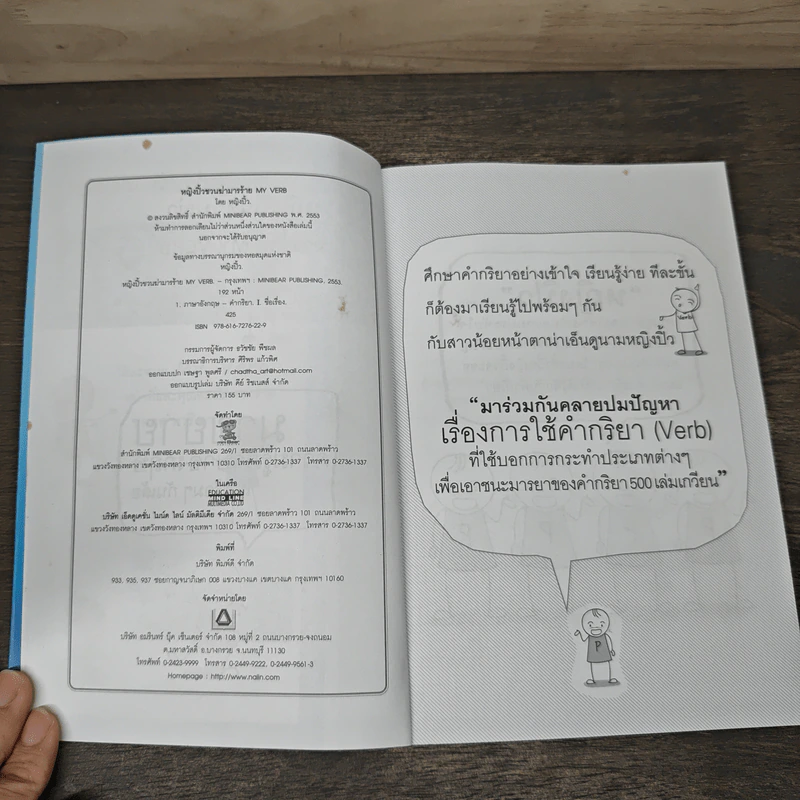 หญิงปิ๋วชวนฆ่ามารร้าย MY VERB
โดย หญิงปิ๋ว.
© สงวนลิขสิทธิ์ สำนักพิมพ์ MINIBEAR PUBLISHING พ.ศ. 2553
ห้ามทำการลอกเลียนไม่ว่าส่วนหนึ่งส่วนใดของหนังสือเล่มนี้
นอกจากจะได้รับอนุญาต
ข้อมูลทางบรรณานุกรมของหอสมุดแห่งชาติ
หญิงปิ๋ว.
หญิงปิ๋วชวนฆ่ามารร้าย MY VERB. - กรุงเทพฯ : MINIBEAR PUBLISHING, 2553.
192 หน้า
1. ภาษาอังกฤษ - คำกริยา. I. ชื่อเรื่อง.
425
ISBN 978-616-7276-22-9
กรรมการผู้จัดการ ธวัชชัย พืชผล
บรรณาธิการบริหาร ศิริพร แก้วพิศ
ออกแบบปก เชษฐา พูลศรี / chadtha_art@hotmail.com
ออกแบบรูปเล่ม บริษัท คีย์ รีซเนสส์ จำกัด
ราคา 155 บาท
จัดทำโดย
สำนักพิมพ์ MINIBEAR PUBLISHING 269/1 ซอยลาดพร้าว 101 ถนนลาดพร้าว
แขวงวังทองหลาง เขตวังทองหลาง กรุงเทพฯ 10310 โทรศัพท์ 0-2736-1337 โทรสาร 0-2736-1337
ในเครือ
EDUCATION
MIND LINE
MULTIMEDIA
บริษัท เอ็ดดูเคชั่น ไมนด์ ไลน์ มัลติมีเดีย จำกัด 269/1 ซอยลาดพร้าว 101 ถนนลาดพร้าว
แขวงวังทองหลาง เขตวังทองหลาง กรุงเทพฯ 10310 โทรศัพท์ 0-2736-1337 โทรสาร 0-2736-1337
พิมพ์ที่
บริษัท พิมพ์ดี จำกัด
933, 935, 937 ซอยกาญจนาภิเษก 008 แขวงบางแค เขตบางแค กรุงเทพฯ 10160
จัดจำหน่ายโดย
บริษัท อมรินทร์ บุ๊ค เซ็นเตอร์ จำกัด 108 หมู่ที่ 2 ถนนบางกรวย-จงถนอม
ต.มหาสวัสดิ์ อ.บางกรวย จ.นนทบุรี 11130
โทรศัพท์ 0-2423-9999 โทรสาร 0-2449-9222, 0-2449-9561-3
Homepage : http://www.naiin.com
ศึกษาคำกริยาอย่างเข้าใจ เรียนรู้ง่าย ทีละขั้น
ก็ต้องมาเรียนรู้ไปพร้อมๆ กัน
Verb
กับสาวน้อยหน้าตาน่าเอ็นดูนามหญิงปิ๋ว
“มาร่วมกันคลายปมปัญหา
เรื่องการใช้คำกริยา (Verb)
ที่ใช้บอกการกระทำประเภทต่างๆ
เพื่อเอาชนะมารยาของคำกริยา 500 เล่มเกวียน”
P